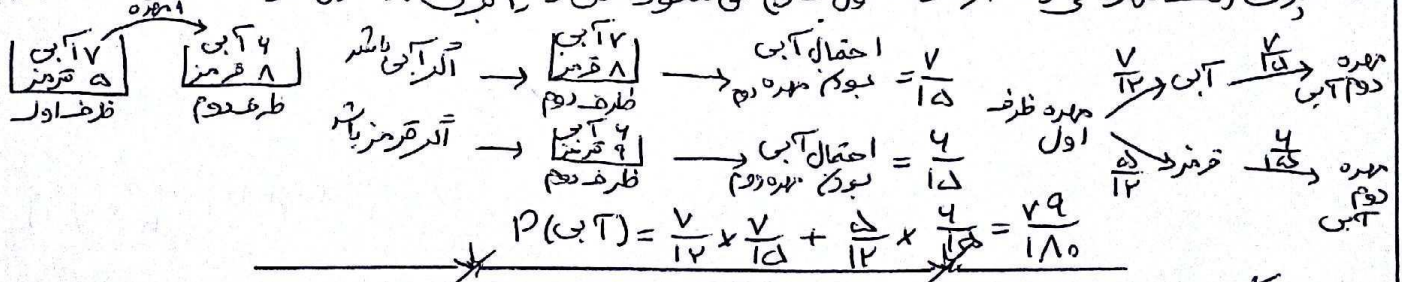 ۱ مهره
۷ آبی ۵ قرمز ظرف اول
۶ آبی ۸ قرمز ظرف دوم
اگر آبی باشد → ۷ آبی ۸ قرمز ظرف دوم → احتمال آبی بودن مهره دوم = ۷/۱۵
اگر قرمز باشد → ۶ آبی ۹ قرمز ظرف دوم → احتمال آبی بودن مهره دوم = ۶/۱۵
مهره ظرف اول
۷/۱۲ آبی ۷/۱۵ مهره دوم آبی
۵/۱۲ قرمز ۶/۱۵ مهره دوم آبی
P(آبی) = ۷/۱۲ × ۷/۱۵ + ۵/۱۲ × ۶/۱۵ = ۷۹/۱۸۰